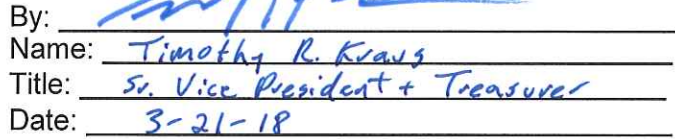 By:
Name: Timothy R. Kraus
Title: Sr. Vice President + Treasurer
Date: 3-21-18